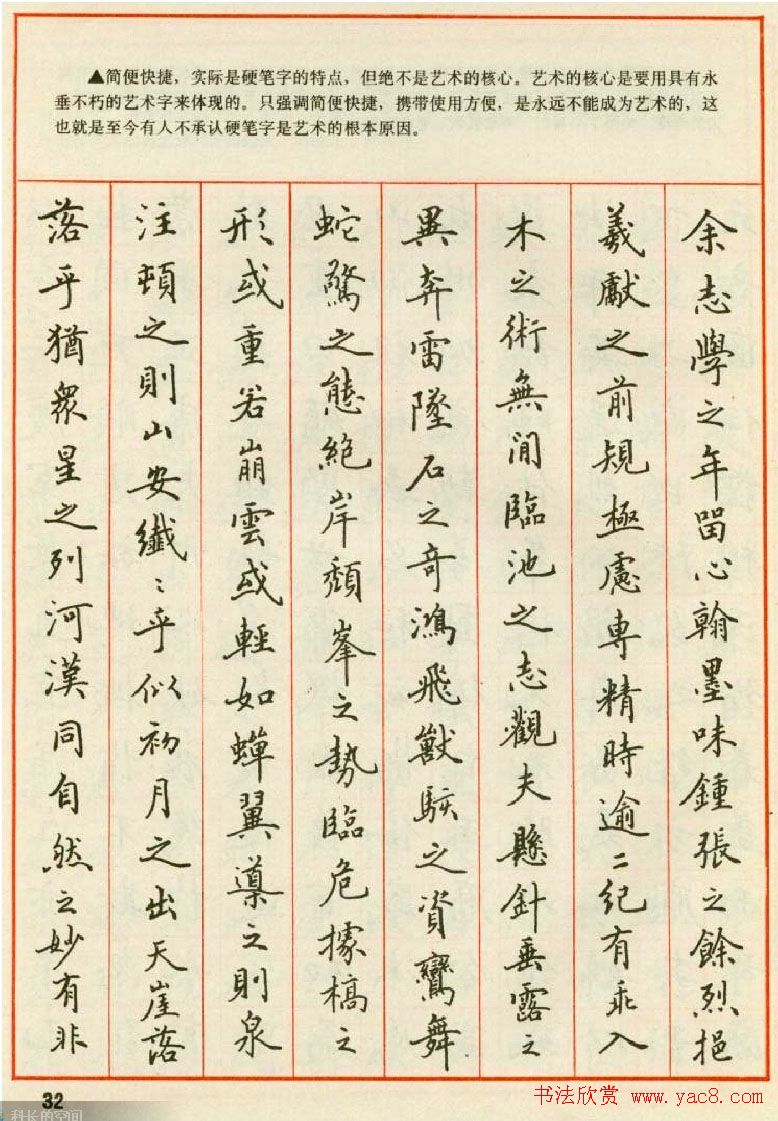 ▲简便快捷，实际是硬笔字的特点，但绝不是艺术的核心。艺术的核心是要用具有永
垂不朽的艺术字来体现的。只强调简便快捷，携带使用方便，是永远不能成为艺术的，这
也就是至今有人不承认硬笔字是艺术的根本原因。
余志學之年留心翰墨味鍾張之餘烈挹
羲獻之前規極慮專精時逾二紀有乖入
木之術無間臨池之志觀夫懸針垂露之
異奔雷墜石之奇鴻飛獸駭之資鸞舞
蛇驚之態絕岸頹峯之勢臨危據槁之
形或重若崩雲或輕如蟬翼導之則泉
注頓之則山安纖〻乎似初月之出天崖落
落乎猶衆星之列河漢同自然之妙有非
32
科长的空间
书法欣赏 www.yac8.com